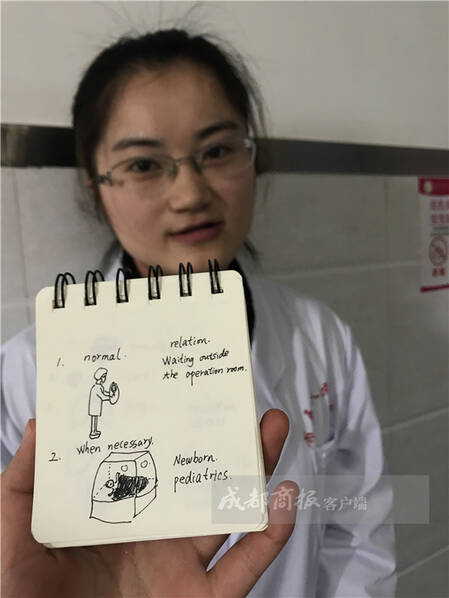 1. normal.
relation.
Waiting outside
the operation room.
2. When necessary.
Newborn.
pediatrics.
成都商报客户端